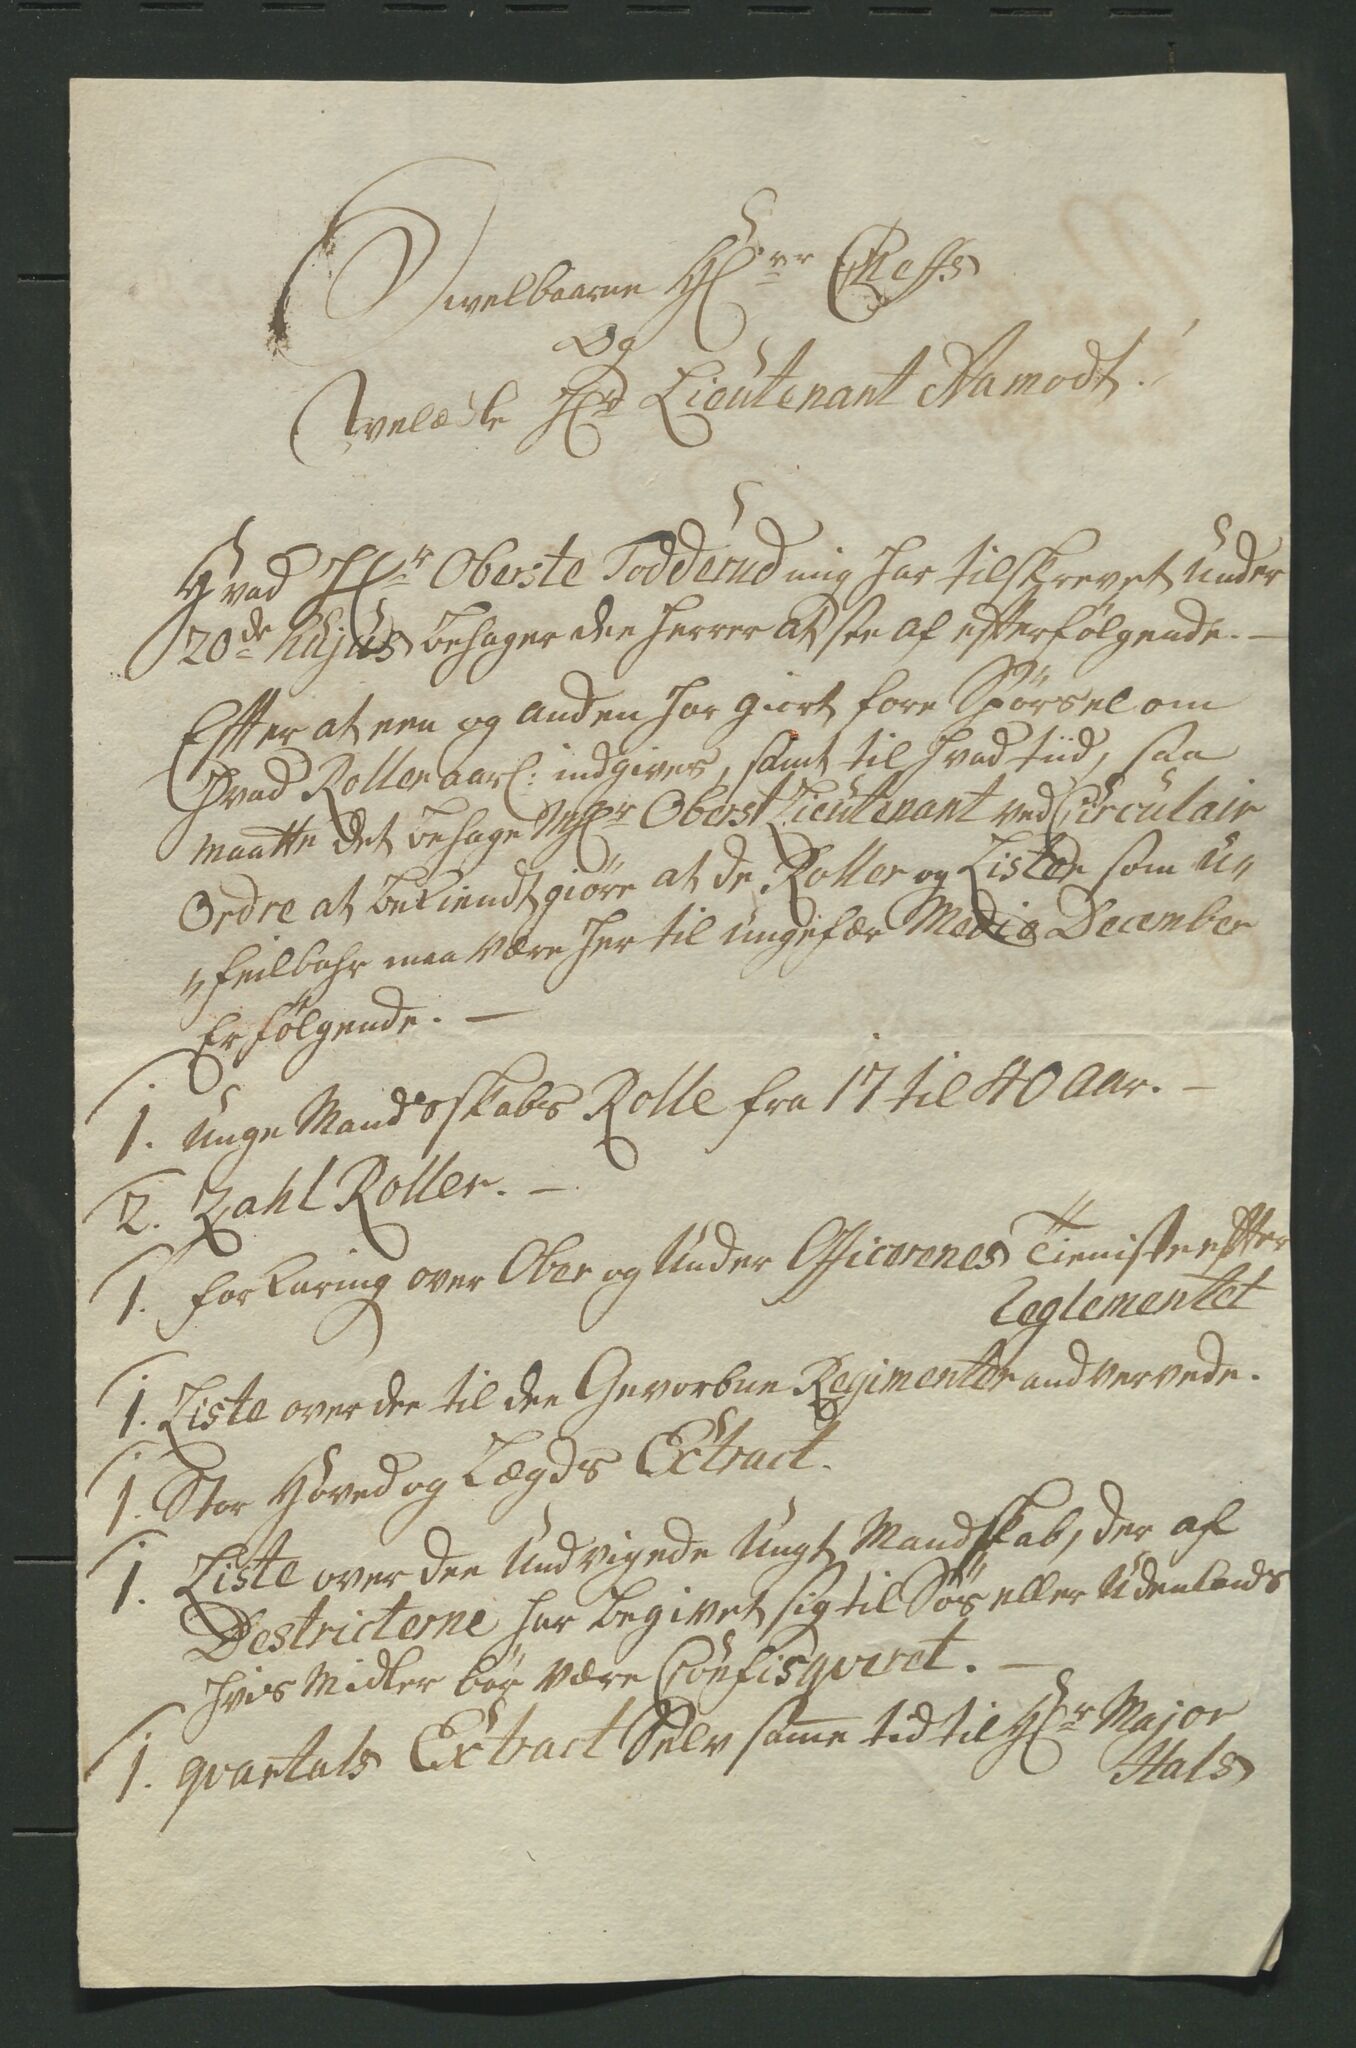 Velbaarne H<sup>rr</sup> Cheffs
Og
Velædle H<sup>r</sup> Lieutenant Aamodt!
Hvad H<sup>r</sup> Oberste Todderud mig har tilskrevet under
20<sup>de</sup> hujus behager die herrer at see af efterfølgende. —
Efter at een og anden har giort fore Spørsel om
hvad Roller aarl: indgives, samt til hvad tiid, saa
maatte det behage H<sup>r</sup> Oberst Lieutenant ved Circulair
Ordre at bekiendtgiøre at de Roller og Lister som u„
„feilbahr maa være her til ungefær Medio December
Er følgende. —
1. Unge Mandsskabs Rolle fra 17 til 40 Aar. —
2. Zahl Roller. —
1. forklaring over Ober og Under Officerenes Tieniste efter
Reglementet
1. Liste over dee til dee Gevorbne Regimenter andvervede.
1. Stor Hoved og Lægds Extract.
1. Liste over dee Undvigede Ungt Mandskab, der af
Destricterne har begivet sig til Søs eller Udenlands
hvis Midler bør være Confisqveret. —
1. qvartals Extract Selv samme tid til H<sup>r</sup> Major
Hals